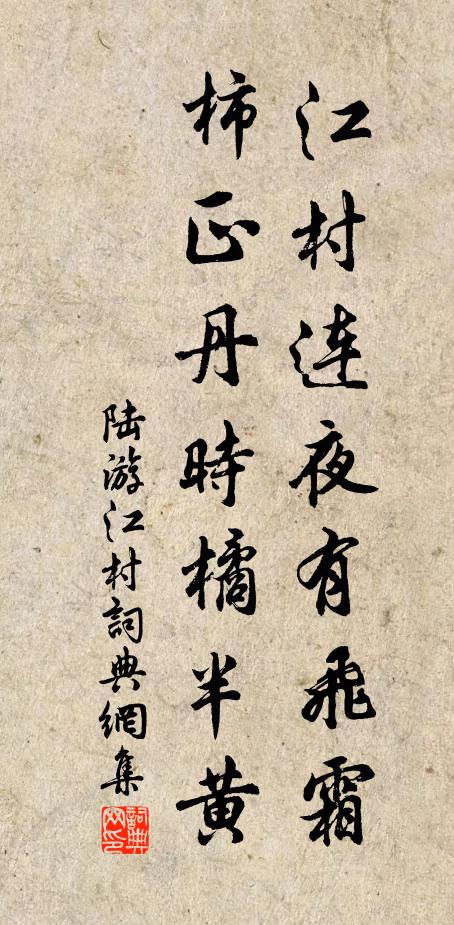 江村連夜有飛霜
柿正丹時橘半黄
陆游江村詞典網集
詞典网印